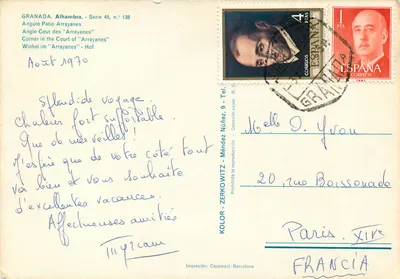 GRANADA. Alhambra. - Serie 41, n.° 138
Angulo Patio Arrayanes
Angle Cour des "Arrayanes"
Corner in the Court of "Arrayanes"
Winkel im "Arrayanes" - Hof
Août 1970
Splendide voyage.
Chaleur fort supportable.
Que de merveilles!
J'espère que de votre côté tout
va bien et vous souhaite
d'excellentes vacances.
Affectueuses amitiés
KOLOR - ZERKOWITZ - Méndez Núñez, 9 - Tel.
Prohibida la reproducción
Impresión: Casamajó-Barcelona
4
PTAS
ESPAÑA
CORREOS
1
PTA
ESPAÑA
CORREOS
GRANADA
Melle D. Yvan
20, rue Boissonade
Paris. XIVe
FRANCIA